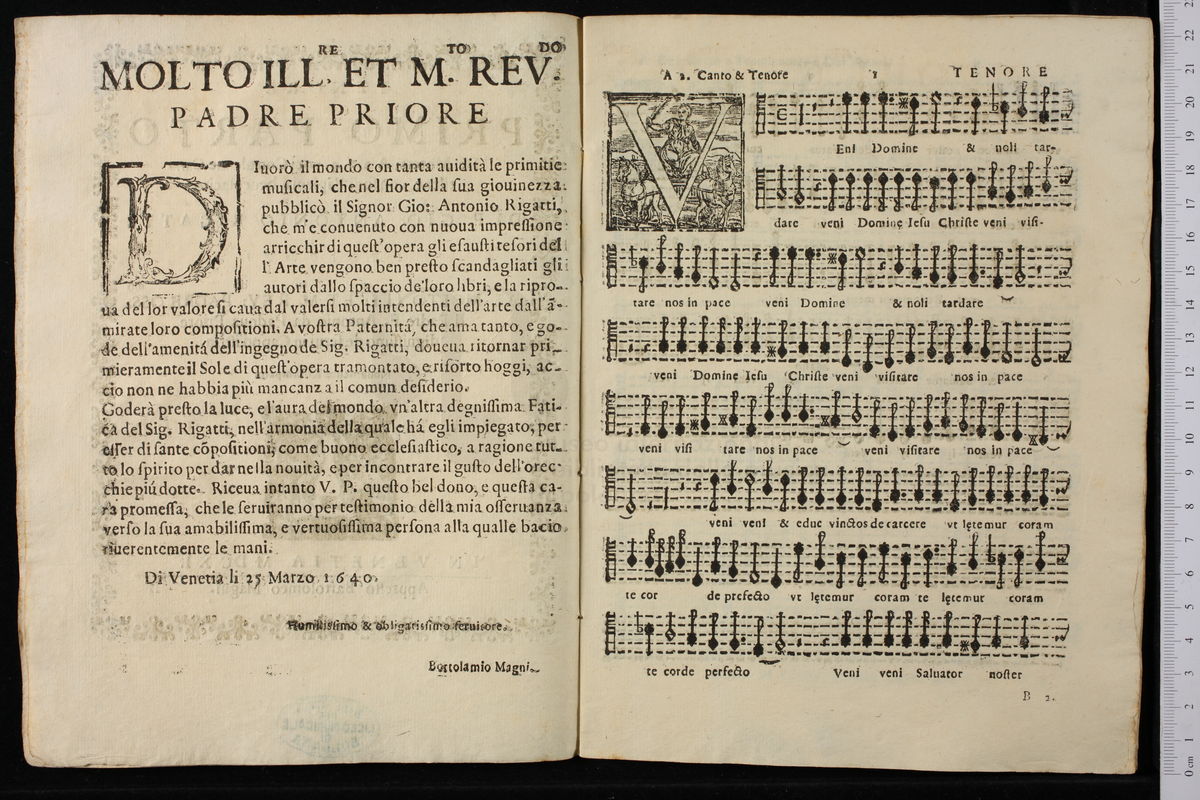 RE TO DO
MOLTO ILL. ET M. REV.
PADRE PRIORE
DIuorò il mondo con tanta auidità le primitie
musicali, che nel fior della sua giouinezza
pubblicò il Signor Gio: Antonio Rigatti,
che m'e conuenuto con nuoua impressione
arricchir di quest'opera gli esausti tesori del
l' Arte vengono ben presto scandagliati gli
autori dallo spaccio de'loro libri, e la ripro-
ua del lor valore si caua dal valersi molti intendenti dell'arte dall'ã-
mirate loro compositioni. A vostra Paternitá, che ama tanto, e go-
de dell'amenitá dell'ingegno de Sig. Rigatti, doueua ritornar pri-
mieramente il Sole di quest'opera tramontato, e risorto hoggi, ac-
cio non ne habbia più mancanza il comun desiderio.
Goderà presto la luce, e l'aura del mondo vn'altra degnissima Fati-
ca del Sig. Rigatti, nell'armonia della quale há egli impiegato, per
esser di sante cõpositioni, come buono ecclesiastico, a ragione tut-
to lo spirito per dar nella nouità, e per incontrare il gusto dell'orec-
chie piú dotte. Riceua intanto V. P. questo bel dono, e questa ca-
ra promessa, che le seruiranno per testimonio della mia osseruanza
verso la sua amabilissima, e vertuosissima persona alla qualle bacio
riuerentemente le mani.
Di Venetia li 25 Marzo 1640.
Humilissimo & obligatissimo seruitore.
Bortolamio Magni.
A 2. Canto & Tenore TENORE
VEni Domine & noli tar-
dare veni Domine Iesu Christe veni visi-
tare nos in pace veni Domine & noli tardare
veni Domine Iesu Christe veni visitare nos in pace
veni visi tare nos in pace veni visitare nos in pace
veni veni & educ vinctos de carcere vt lętemur coram
te cor de prefecto vt lętemur coram te lętemur coram
te corde perfecto Veni veni Saluator noster
B 2.